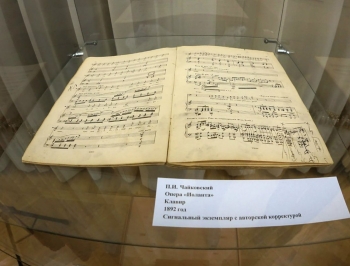 П.И. Чайковский
Опера «Иоланта»
Клавир
1892 год
Сигнальный экземпляр с авторской корректурой